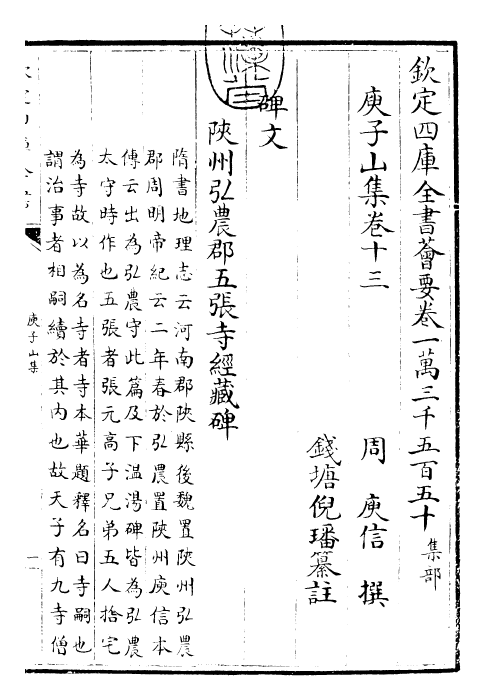 欽定四庫全書薈要卷一萬三千五百五十 集部
庾子山集卷十三
周 庾信 撰
錢塘倪璠纂註
碑文
陜州弘農郡五張寺經藏碑
隋書地理志云河南郡陜縣後魏置陜州弘農
郡周明帝紀云二年春於弘農置陜州庾信本
傳云出為弘農守此篇及下温湯碑皆為弘農
太守時作也五張者張元高子兄弟五人捨宅
為寺故以為名寺者寺本華題釋名曰寺嗣也
謂治事者相嗣續於其内也故天子有九寺僧
庾子山集
一